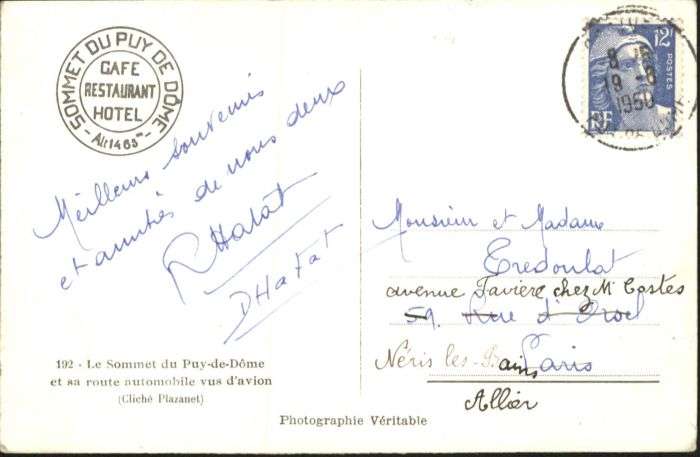 SOMMET DU PUY DE DÔME
CAFE
RESTAURANT
HOTEL
- Alt 1465m -
Meilleurs souvenirs
et amitiés de nous deux
RHatat
DHatat
192 - Le Sommet du Puy-de-Dôme
et sa route automobile vus d'avion
(Cliché Plazanet)
12F
POSTES
RF
8
19-8
1950
Monsieur et Madame
Tredoulat
avenue Favière chez Mr Costes
59. Rue d'
Néris les-Bains Paris
Allier
Photographie Véritable